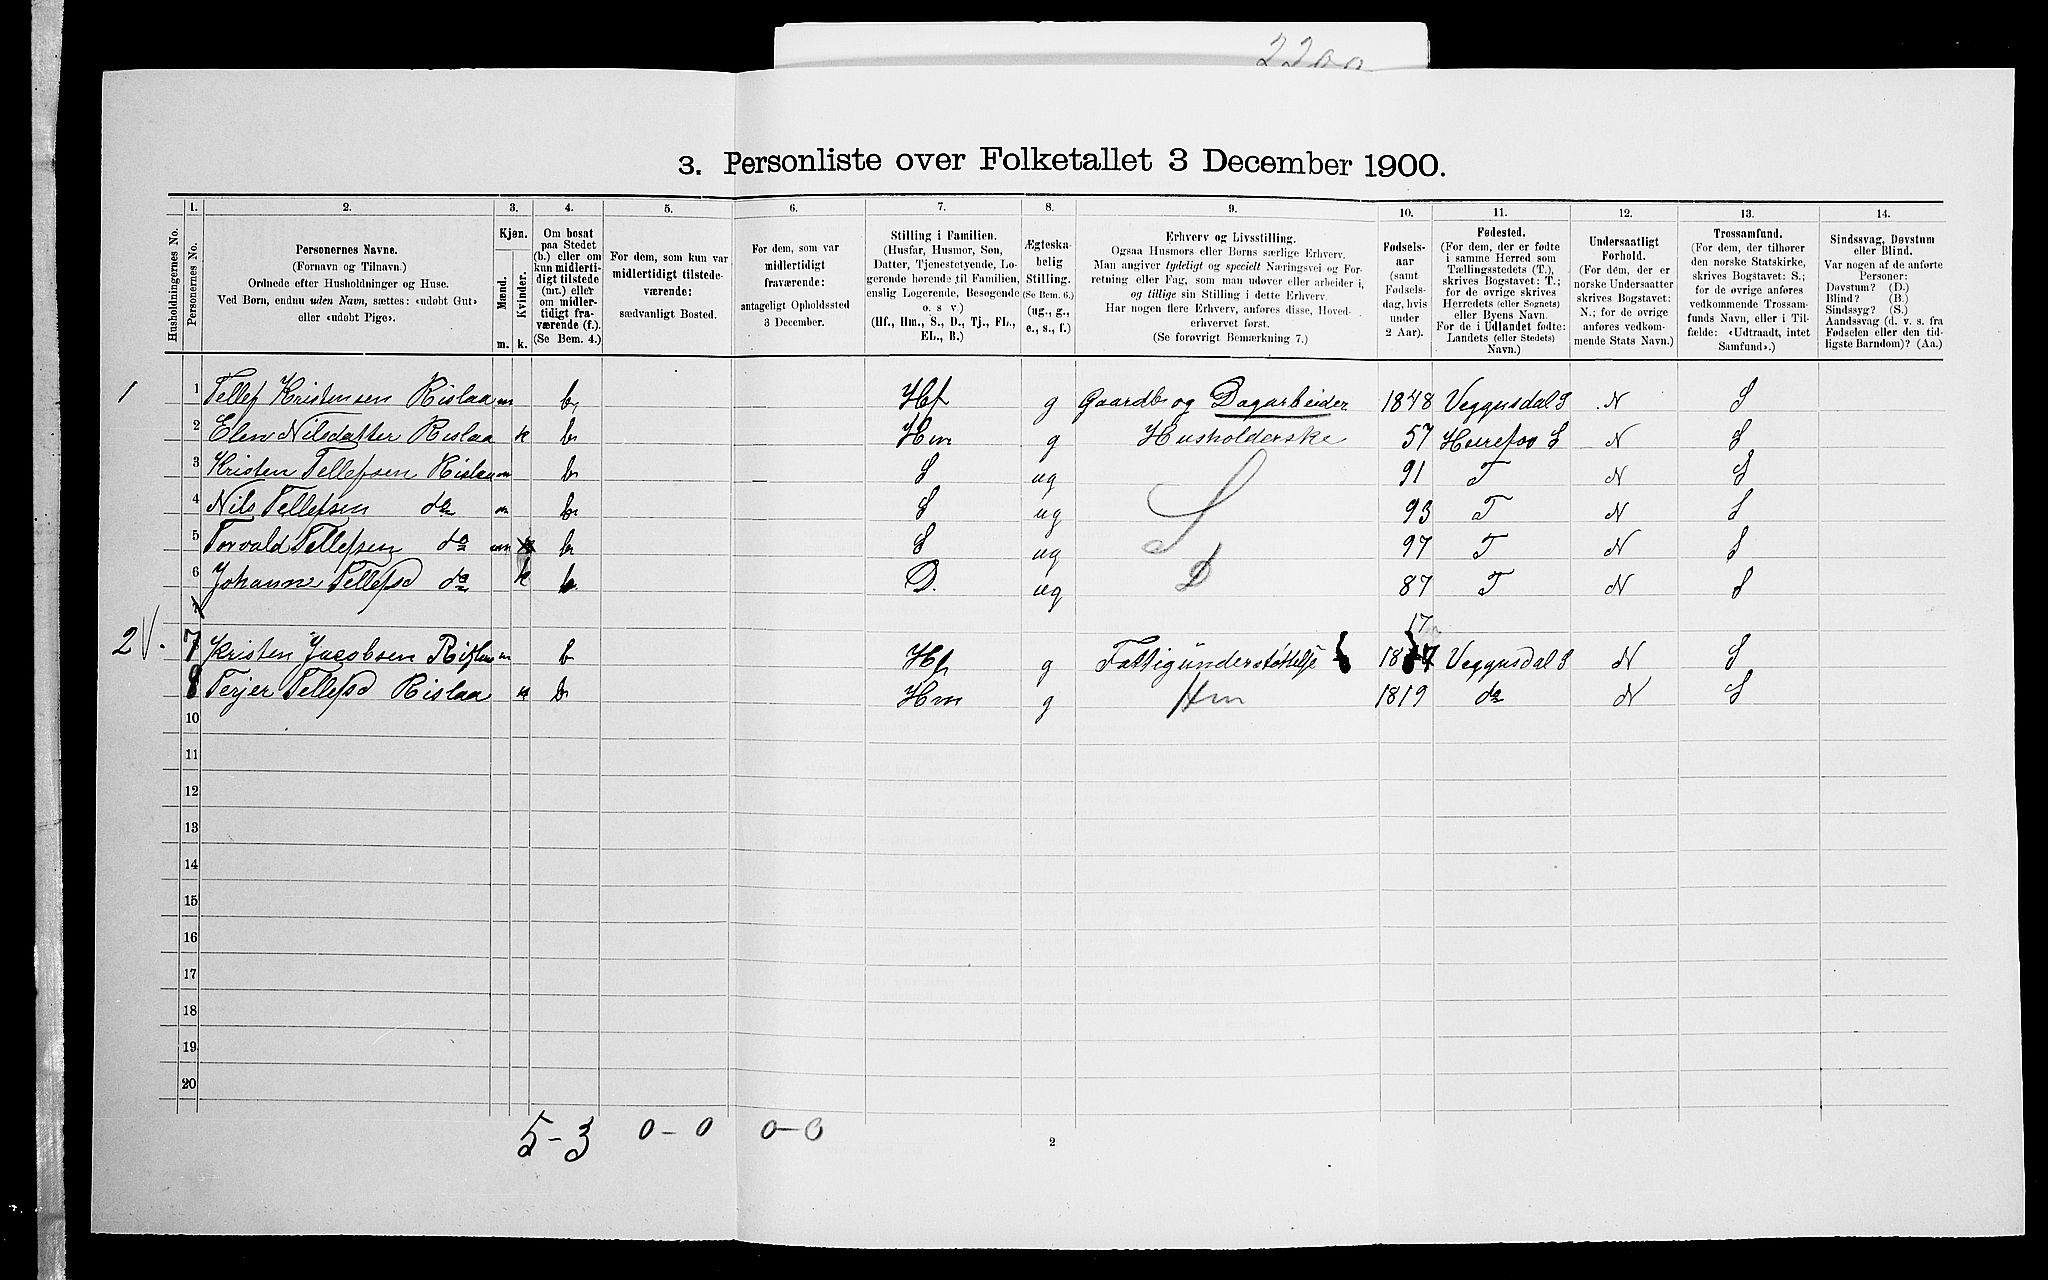 2200
3. Personliste over Folketallet 3 December 1900.
1. 2. 3. 4. 5. 6. 7. 8. 9. 10. 11. 12. 13. 14.
Husholdningernes No.
Personernes No.
Personernes Navne.
(Fornavn og Tilnavn.)
Ordnede efter Husholdninger og Huse.
Ved Børn, endnu uden Navn, sættes: «udøbt Gut»
eller «udøbt Pige».
Kjøn.
Mænd.
Kvinder.
m. k.
Om bosat
paa Stedet
(b.) eller om
kun midlerti-
digt tilstede
(mt.) eller
om midler-
tidigt fra-
værende (f.).
(Se Bem. 4.)
For dem, som kun var
midlertidigt tilstede-
værende:
sædvanligt Bosted.
For dem, som var
midlertidigt
fraværende:
antageligt Opholdssted
3 December.
Stilling i Familien.
(Husfar, Husmor, Søn,
Datter, Tjenestetyende, Lo-
gerende hørende til Familien,
enslig Logerende, Besøgende
o. s v)
(Hf., Hm., S., D., Tj., FL.,
EL., B.)
Ægteska-
belig
Stilling.
(Se Bem. 6.)
(ug., g.,
e., s., f.)
Erhverv og Livsstilling.
Ogsaa Husmors eller Børns særlige Erhverv.
Man angiver tydeligt og specielt Næringsvei og For-
retning eller Fag, som man udøver eller arbeider i,
og tillige sin Stilling i dette Erhverv.
Har nogen flere Erhverv, anføres disse, Hoved-
erhvervet først.
(Se forøvrigt Bemærkning 7.)
Fødsels-
aar
(samt
Fødsels-
dag, hvis
under
2 Aar).
Fødested.
(For dem, der er fødte
i samme Herred som
Tællingsstedets (T.),
skrives Bogstavet: T.;
for de øvrige skrives
Herredets (eller Sognets)
eller Byens Navn.
For de i Udlandet fødte:
Landets (eller Stedets)
Navn.)
Undersaatligt
Forhold.
(For dem, der er
norske Undersaatter
skrives Bogstavet:
N.; for de øvrige
anføres vedkom-
mende Stats Navn.)
Trossamfund.
(For dem, der tilhører
den norske Statskirke,
skrives Bogstavet: S.;
for de øvrige anføres
vedkommende Trossam-
funds Navn, eller i Til-
fælde: «Udtraadt, intet
Samfund».)
Sindssvag, Døvstum
eller Blind.
Var nogen af de anførte
Personer:
Døvstum? (D.)
Blind? (B.)
Sindssyg? (S.)
Aandssvag (d. v. s. fra
Fødselen eller den tid-
ligste Barndom)? (Aa.)
1 1 Tellef Kristensen Rislaa m b. Hf g Gaardb og Dagarbeider 1848 Veggusdal S N S
2 Elen Nilsdatter Rislaa k b Hm g Husholderske 57 N S
3 Kristen Tellefsen Rislaa m b S ug S 91 T N S
4 Nils Tellefsen do m b S ug 93 T N S
5 Torvald Tellefsen do m b S ug 97 T N S
6 Johanne Tellefsd do k b D. ug D 87 T N S
17
2 7 Kristen Jacobsen Rislaa m b Hf g Fattigunderstøttelse Veggusdal S N S
8 Terjer Tellefsd Rislaa k b Hm g Hm 1819 do N S
10
11
12
13
14
15
16
17
18
19
20
5-3 0-0 0-0
2